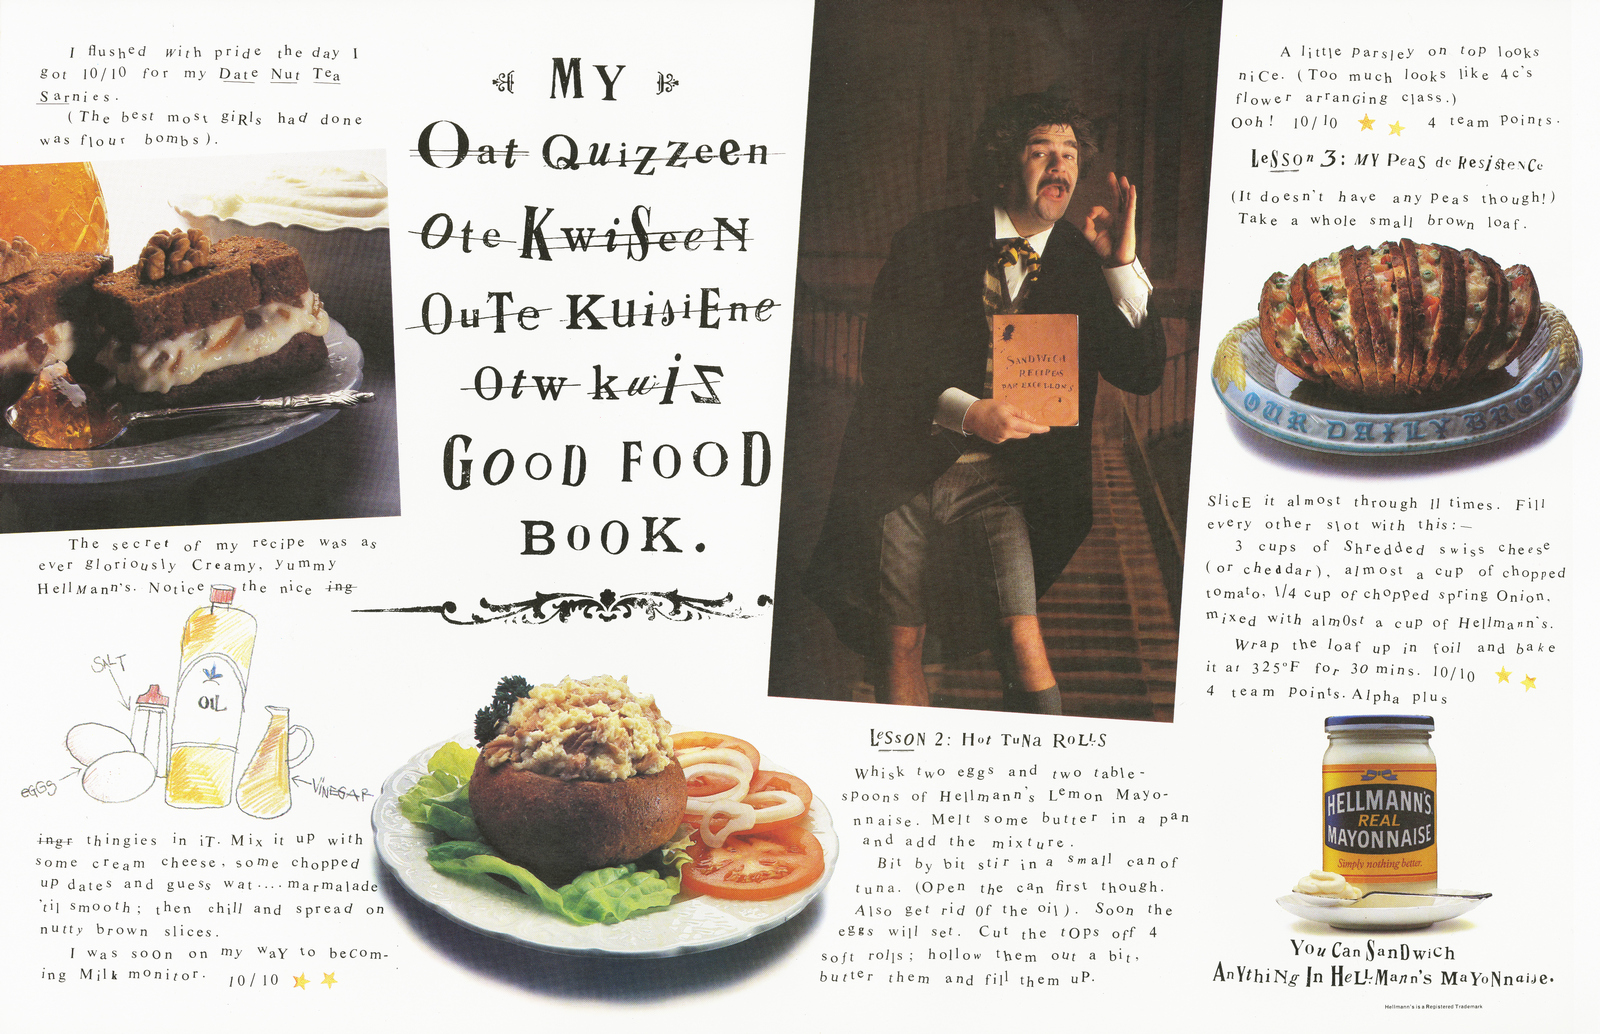 I flushed with pride the day I
got 10/10 for my Date Nut Tea
Sarnies.
(The best most giRls had done
was flour bombs).
The secret of my recipe was as
ever gloriously Creamy, yummy
HellMann's. Notice the nice ing-
SALT
OIL
EGGS
VINEGAR
ingr thingies in iT. Mix it uP with
some cream cheese, some chopped
up dates and guess wat....marmalade
'til smooth; then chill and spread on
nutty brown slices.
I was soon on my waY to becom-
ing Milk monitor. 10/10
MY
Oat Quizzeen
Ote KwiSeeN
OuTe KuisiEne
Otw kuiz
GOOD FOOD
BOOK.
SANDWICH
RECIPES
PAR EXCELLONS
LeSSON 2: Hot TuNa RoLLS
Whisk two eggs and two table-
spoons of Hellmann's Lemon Mayo-
nnaise. Melt some butter in a pan
and add the mixture.
Bit by bit stir in a small can of
tuna. (Open the can first though.
Also get rid Of the oil). Soon the
eggs will set. Cut the tOps off 4
soft rolls; hollow them out a bit,
butter them and fill them uP.
A little parsley on top looks
niCe. (Too much looks like 4c's
flower arranging class.)
Ooh! 10/10 4 team points.
LeSSon 3: MY PeaS de ResisteNce
(It doesn't have any peas though!)
Take a whole small brown loaf.
OUR DAILY BREAD
SlicE it almost through 11 times. Fill
every other slot with this:—
3 cups of Shredded swiss cheese
(or cheddar), almost a cup of chopped
tomato, 1/4 cup of chopped spring Onion,
mixed with almOst a cup of Hellmann's.
Wrap the loaf up in foil and bake
it at 325°F for 30 mins. 10/10
4 team points. Alpha plus
HELLMANN'S
REAL
MAYONNAISE
Simply nothing better.
You Can SanDwich
AnYthiNg In HeLLMann's MaYoNnaise.
Hellmann's is a Registered Trademark